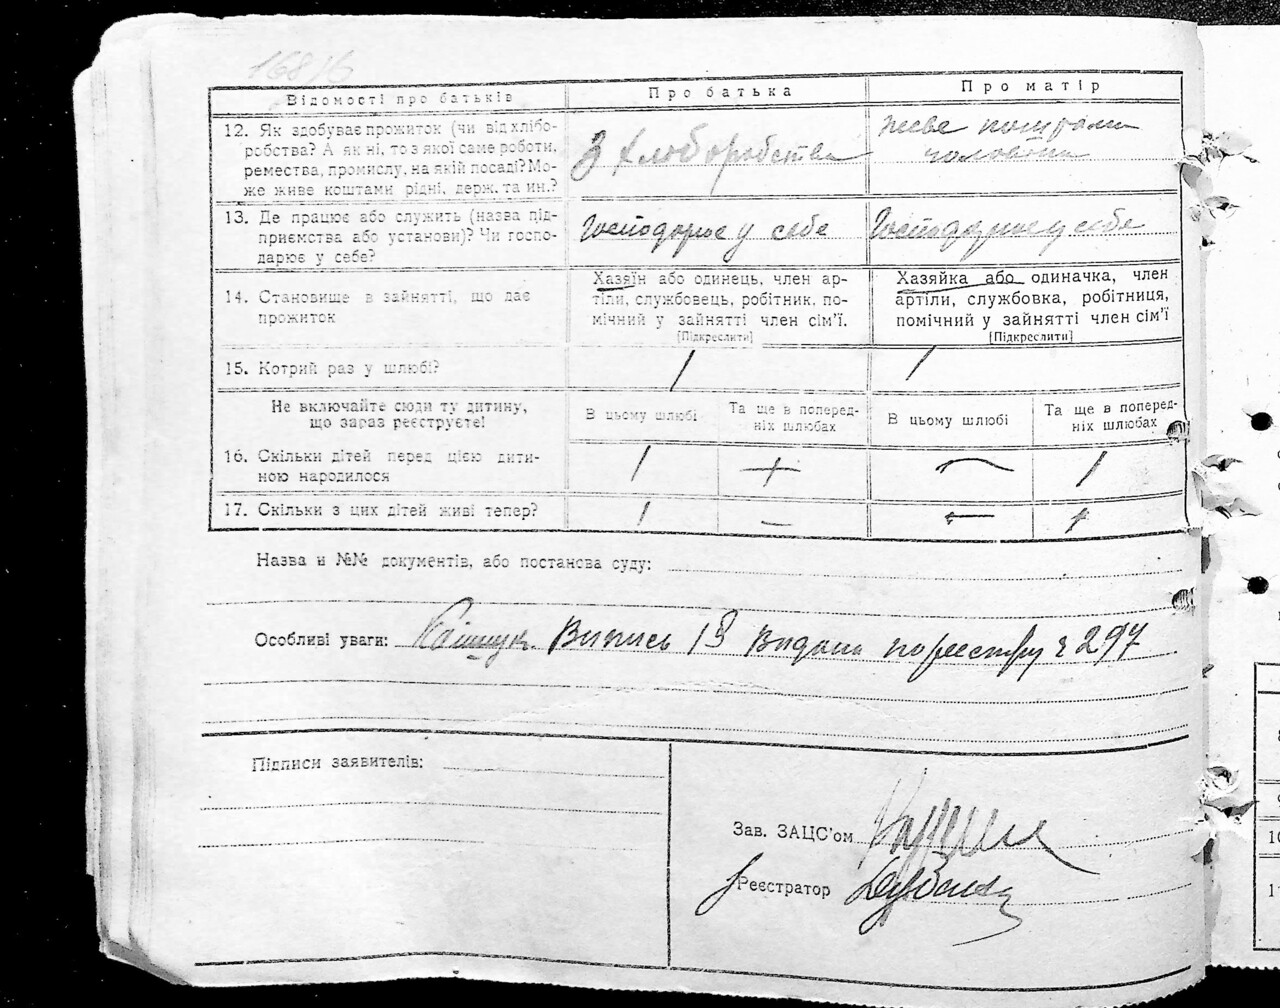 168/6
Відомості про батьків
Про батька
Про матір
12. Як здобуває прожиток (чи від хлібо-
робства? А як ні, то з якої саме роботи,
ремества, промислу, на якій посаді? Мо-
же живе коштами рідні, держ. та ин.?
З хлоборобства
живе
13. Де працює або служить (назва під-
приємства або установи)? Чи госпо-
дарює у себе?
Господорює у себе
Господорює у себе
14. Становище в зайнятті, що дає
прожиток
Хазяїн або одинець, член ар-
тіли, службовець, робітник, по-
мічний у зайнятті член сім’ї.
[Підкреслити]
Хазяйка або одиначка, член
артіли, службовка, робітниця,
помічний у зайнятті член сім’ї
[Підкреслити]
15. Котрий раз у шлюбі?
1
1
Не включайте сюди ту дитину,
що зараз реєструєте!
В цьому шлюбі
Та ще в поперед-
ніх шлюбах
В цьому шлюбі
Та ще в поперед-
ніх шлюбах
16. Скільки дітей перед цією дити-
ною народилося
1
+
—
1
17. Скільки з цих дітей живі тепер?
1
—
—
1
Назва и №№ документів, або постанова суду:
Особливі уваги: Випись 13 видана по реєстру ч 297
Підписи заявителів:
Зав. ЗАЦС’ом
Реєстратор